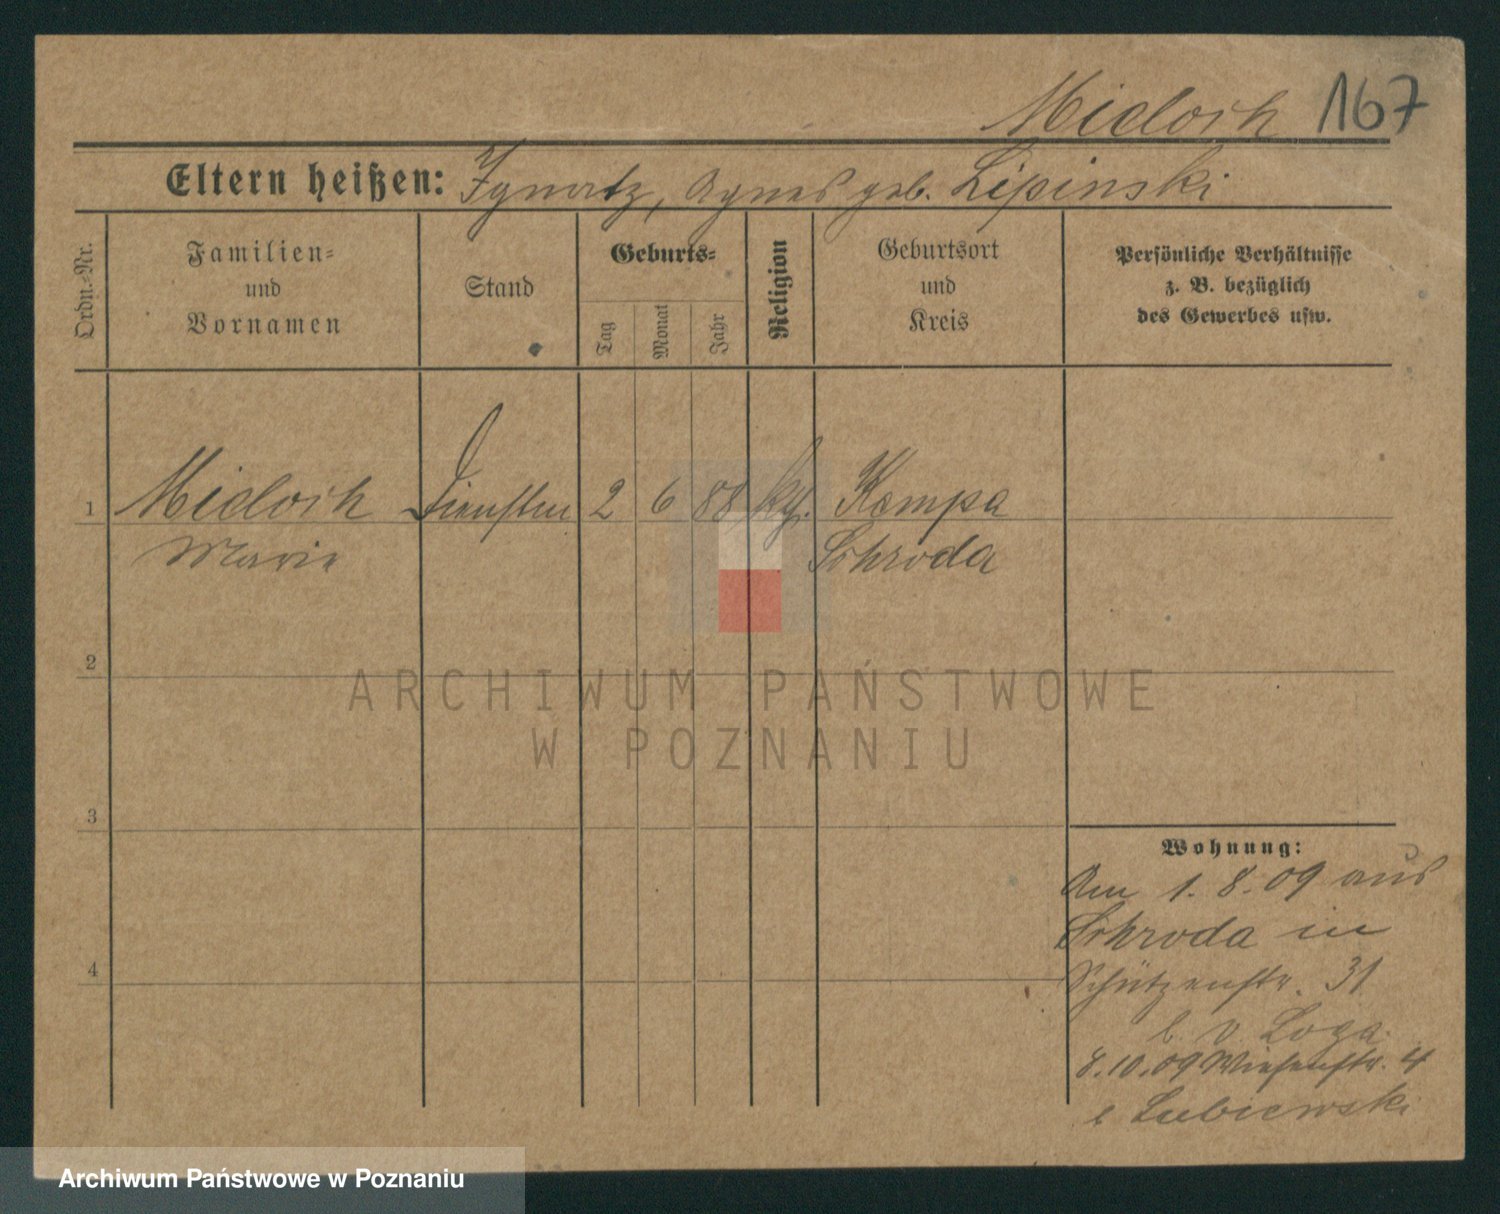 Midoch 167
Eltern heißen: Ignatz, Agnes geb. Lipinski
Ordn.-Nr.
Familien=
und
Vornamen
Stand
Geburts=
Tag
Monat
Jahr
Religion
Geburtsort
und
Kreis
Persönliche Verhältnisse
z. B. bezüglich
des Gewerbes usw.
1 Midoch 2 6 88 kth. Kempa
Marie Schroda
2
ARCHIWUM PAŃSTWOWE
W POZNANIU
3
Wohnung:
Am 1. 8. 09 aus
Schroda in
4
Schützenstr. 31
b. v. Loga
8.10.09 Wiesenstr. 4
b Lubiewski
Archiwum Państwowe w Poznaniu